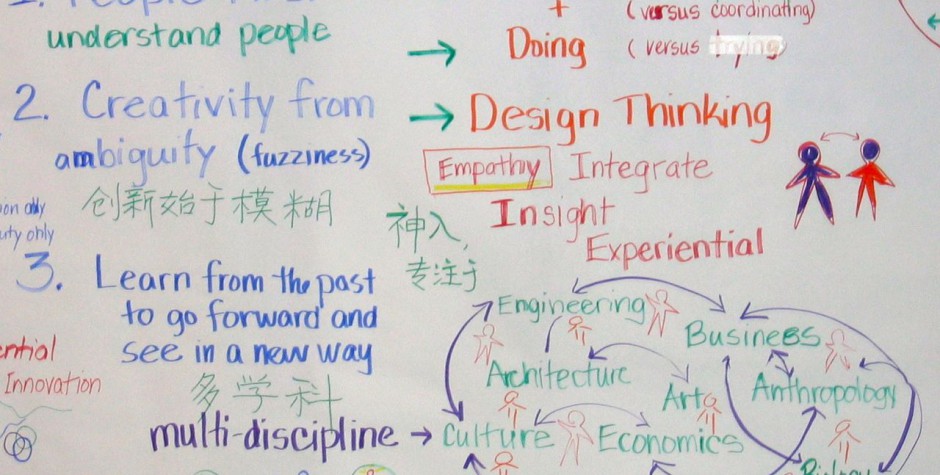 1. People First
understand people
+ (versus coordinating)
→ Doing (versus trying)
2. Creativity from
ambiguity (fuzziness)
创新始于模糊
→ Design Thinking
Empathy Integrate
Insight
Experiential
神入,
专注于
only
3. Learn from the past
to go forward and
see in a new way
多学科
multi-discipline →
Innovation
Engineering
Business
Architecture
Art
Anthropology
Culture
Economics
Biology